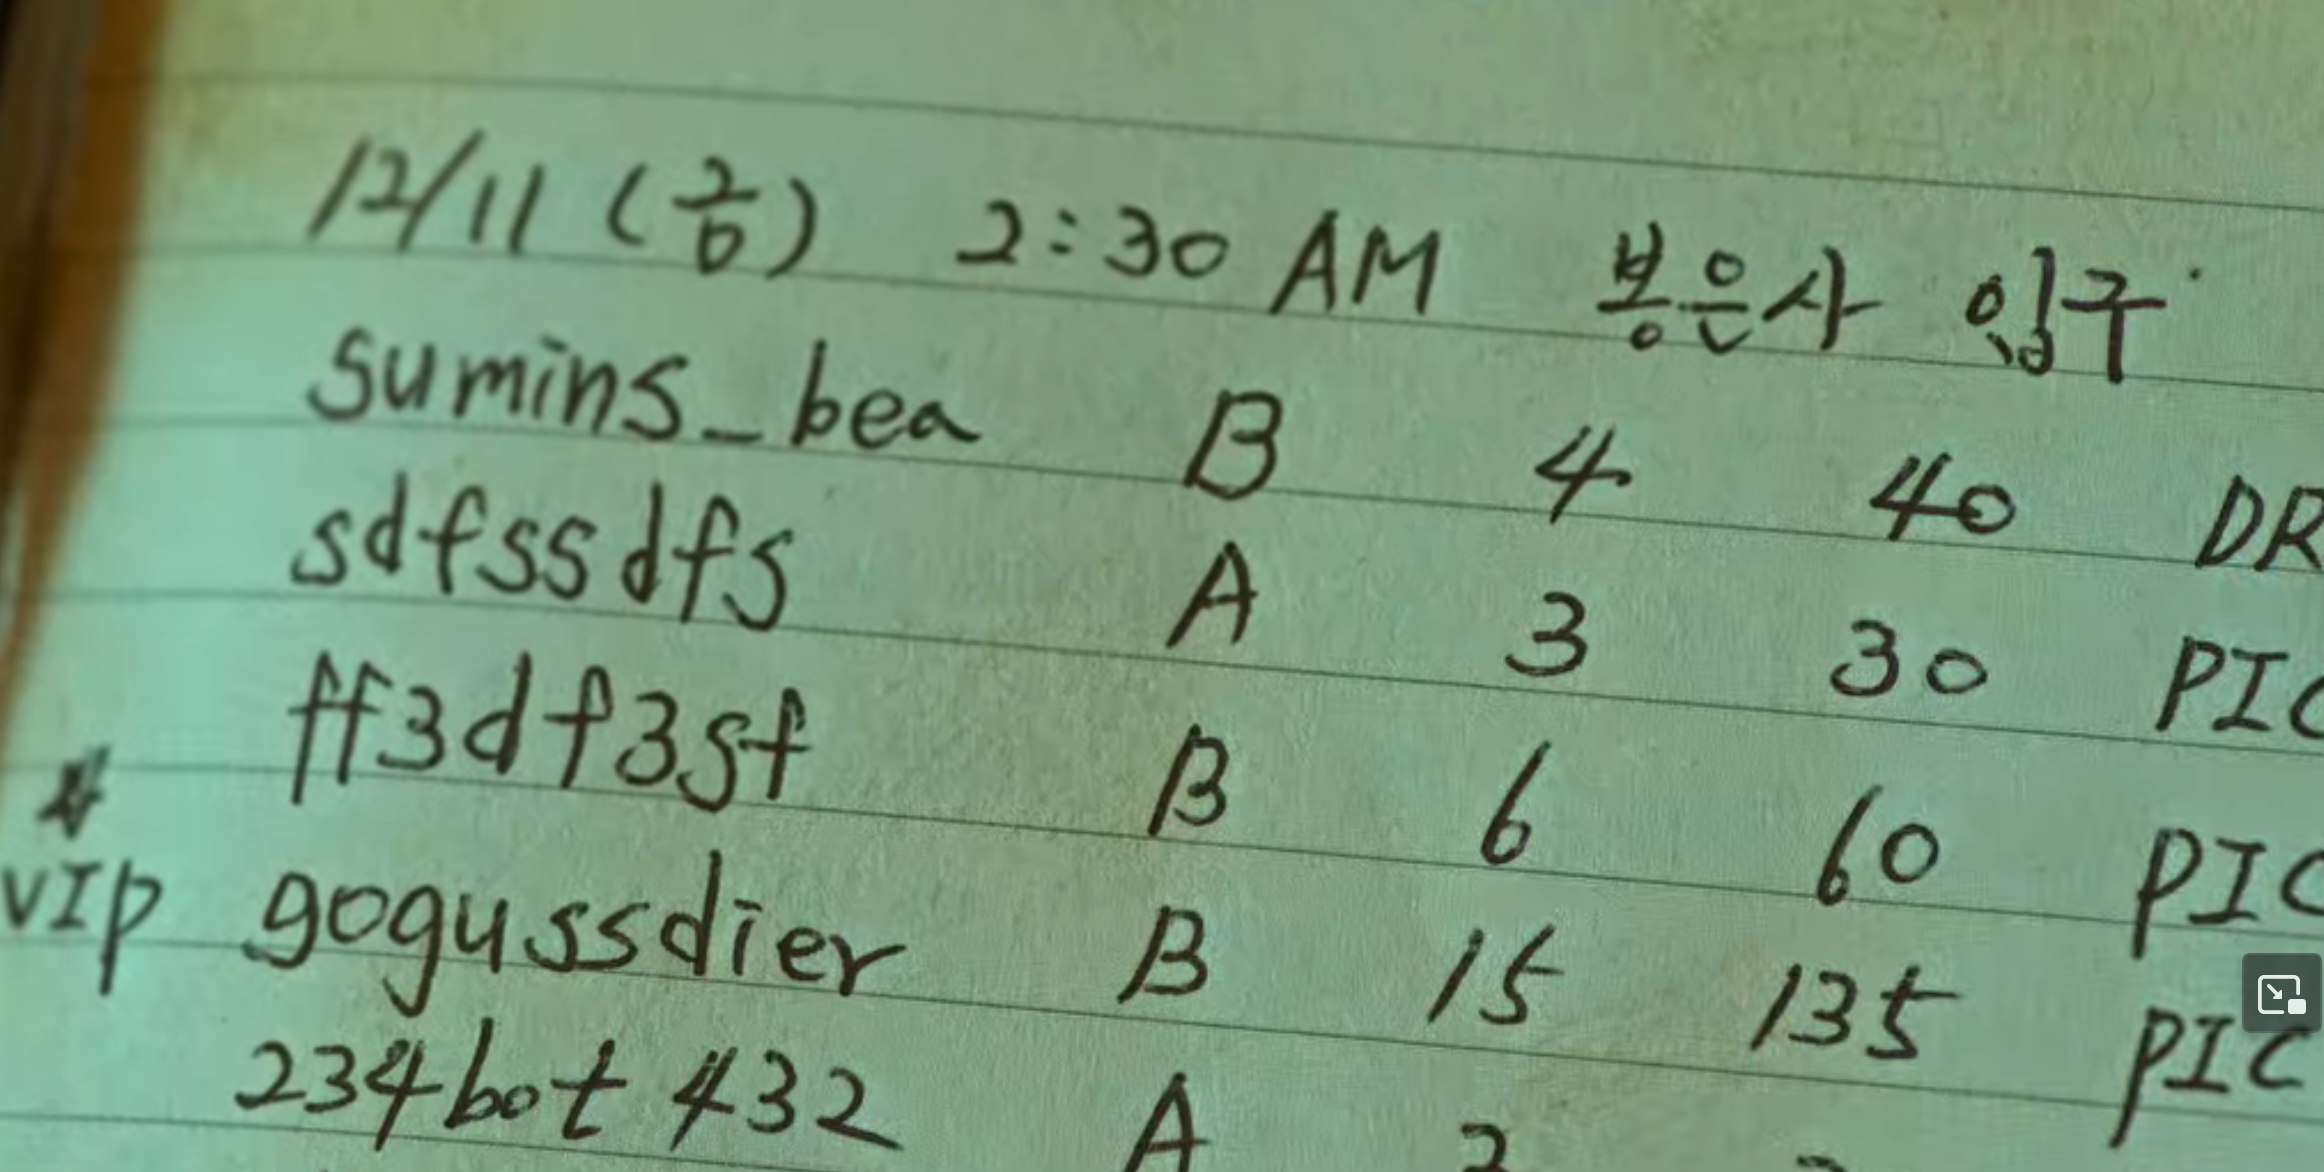 12/11 (금) 2:30 AM 봉은사 입구
sumins_bea B 4 40 DR
sdfssdfs A 3 30 PIC
ff3df3sf B 6 60 PIC
VIP gogussdier B 15 135 PIC
234bot432 A